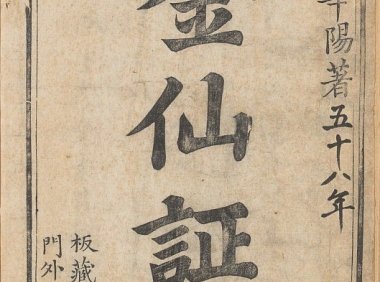 陽著五十八年
金仙証
板藏
門外